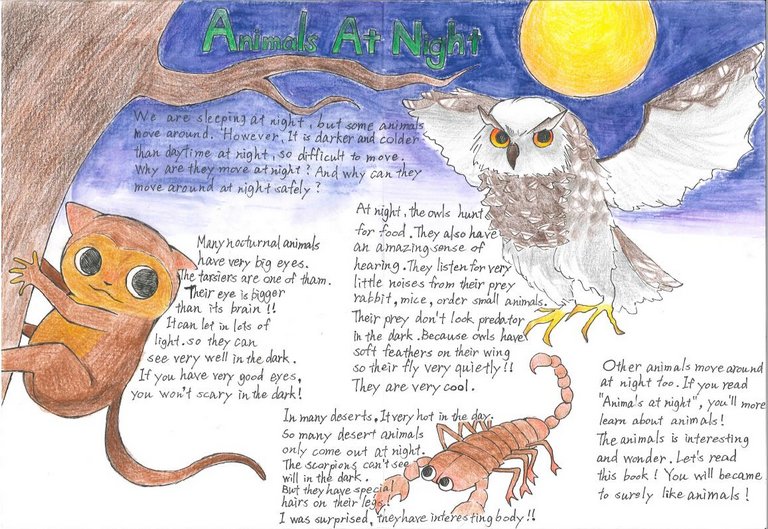 Animals At Night
We are sleeping at night, but some animals
move around. However, It is darker and colder
than daytime at night, so difficult to move.
Why are they move at night? And why can they
move around at night safely?
Many nocturnal animals
have very big eyes.
The tarsiers are one of tham.
Their eye is bigger
than its brain!!
It can let in lots of
light. so they can
see very well in the dark.
If you have very good eyes,
you won't scary in the dark!
At night, the owls hunt
for food. They also have
an amazing sense of
hearing. They listen for very
little noises from their prey
rabbit, mice, order small animals.
Their prey don't look predator
in the dark. Because owls have
soft feathers on their wing
so their fly very quietly!!
They are very cool.
In many deserts, It very hot in the day.
So many desert animals
only come out at night.
The scorpions can't see
will in the dark.
But they have special
hairs on their legs!
I was surprised, they have interesting body!!
Other animals move around
at night too. If you read
"Animals at night", you'll more
learn about animals!
The animals is interesting
and wonder. Let's read
this book! You will became
to surely like animals!